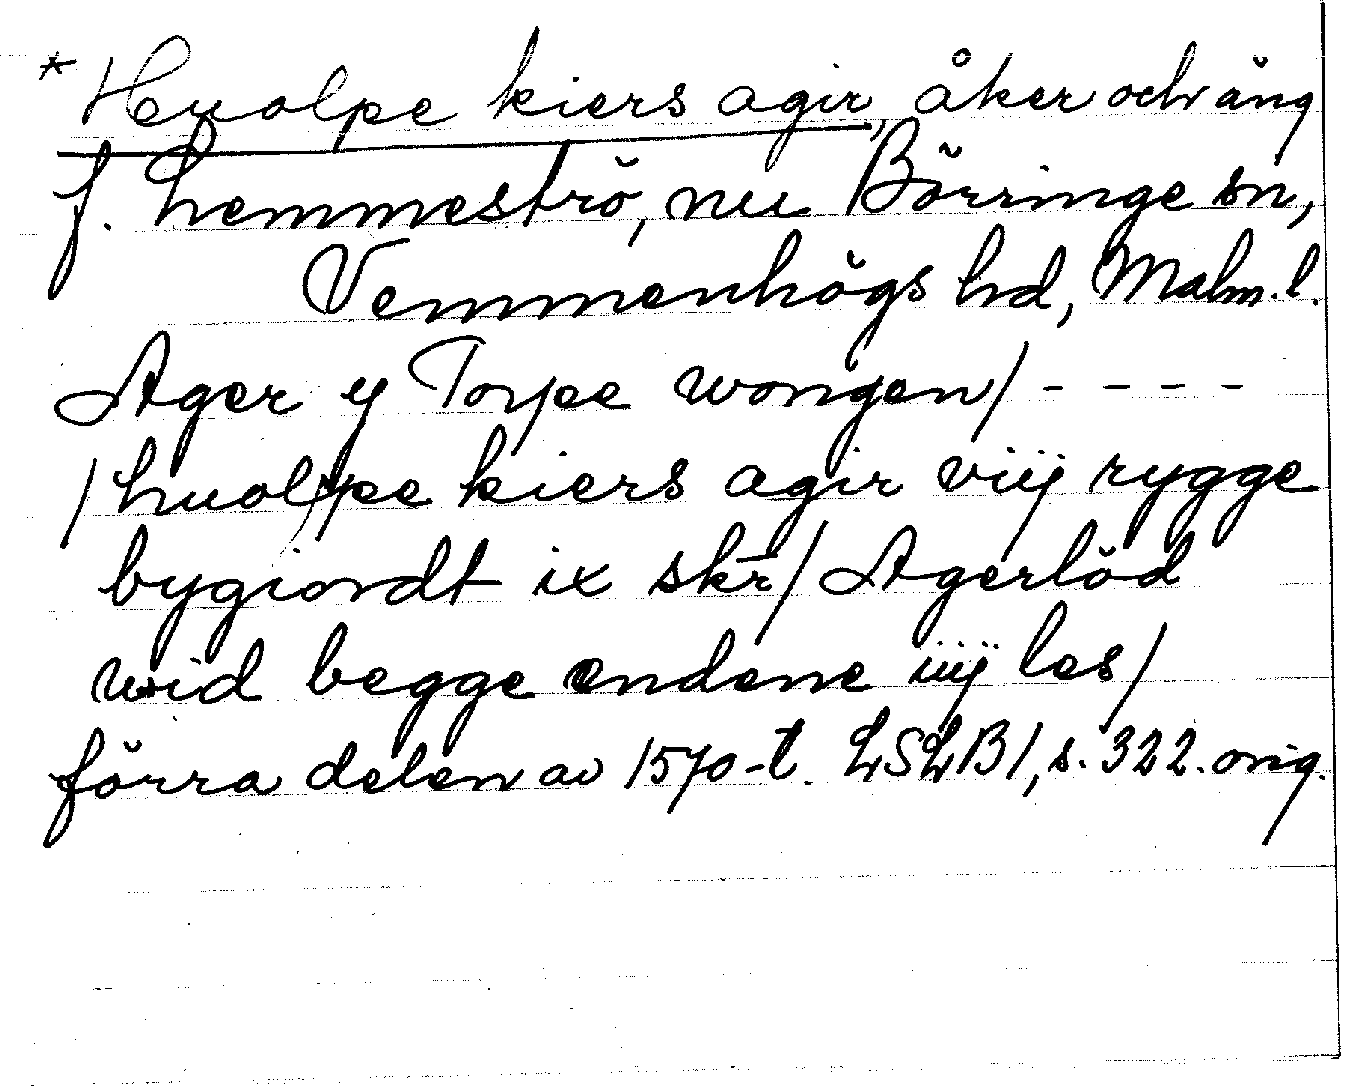 * Huolpe kiers agir, åker och äng
f. Lemmeströ, nu Börringe sn,
Vemmenhögs hd, Malm. l.
Ager y Torpe wongen/ - - - -
/huolpe kiers agir viij rygge
bygiordt ix skr/ Agerlöd
wid begge endene iiij les/
förra delen av 1570-t. LSLB1, s. 322. orig.